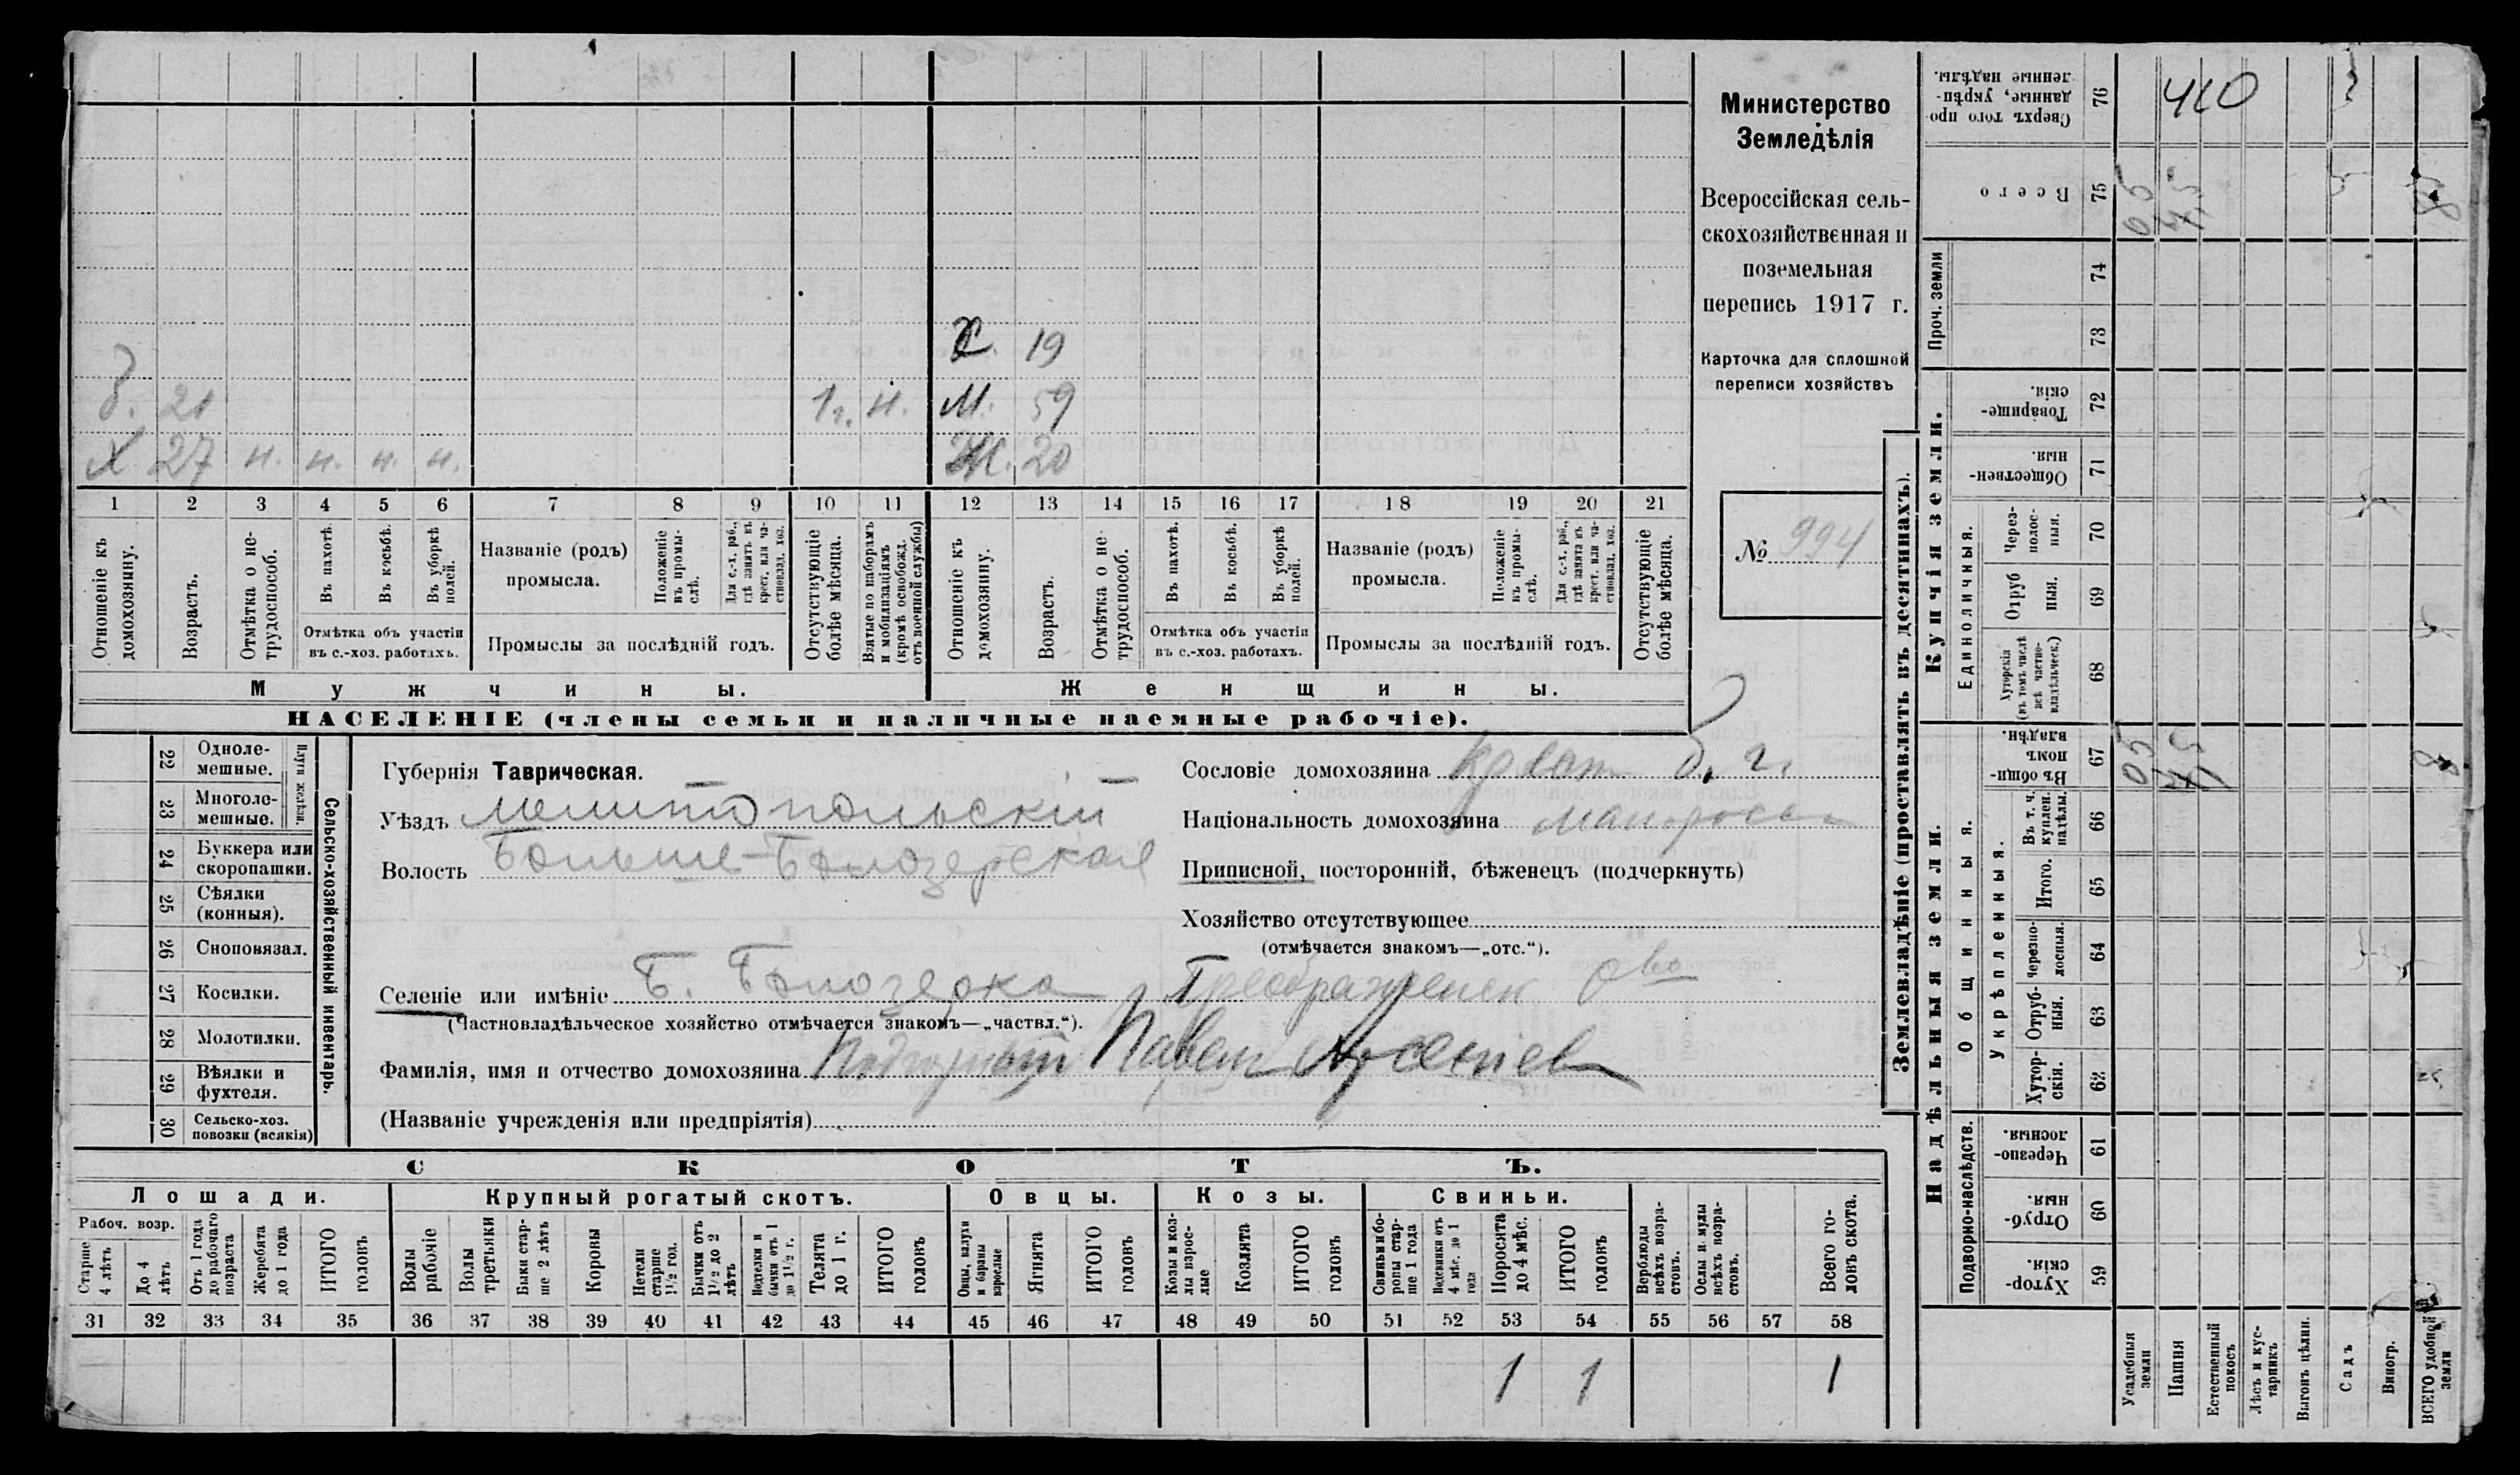 Министерство
Земледѣлія
Всероссійская сель-
скохозяйственная и
поземельная
перепись 1917 г.
Карточка для сплошной
переписи хозяйствъ
№ 994
Х. 19
б. 21 1 г. н. М. 59
Х 27 н. н. н. н. Ж. 20
1 2 3 4 5 6 7 8 9 10 11 12 13 14 15 16 17 18 19 20 21
Отношеніе къ домохозяину.
Возрастъ.
Отмѣтка о не-трудоспособ.
Въ пахотѣ.
Въ косьбѣ.
Въ уборкѣ полей.
Отмѣтка объ участіи
въ с.-хоз. работахъ.
Названіе (родъ)
промысла.
Положеніе въ промы-слѣ.
Для с.-х. раб., гдѣ занятъ въ крест. или ча-стновлад. хоз.
Промыслы за послѣдній годъ.
Отсутствующіе болѣе мѣсяца.
Взятые по наборамъ и мобилизаціямъ (кромѣ освобожд. отъ военной службы)
Отношеніе къ домохозяину.
Возрастъ.
Отмѣтка о не-трудоспособ.
Въ пахотѣ.
Въ косьбѣ.
Въ уборкѣ полей.
Отмѣтка объ участіи
въ с.-хоз. работахъ.
Названіе (родъ)
промысла.
Положеніе въ промы-слѣ.
Для с.-х. раб., гдѣ занята въ крест. или ча-стновлад. хоз.
Промыслы за послѣдній годъ.
Отсутствующіе болѣе мѣсяца.
Мужчины.
Женщины.
НАСЕЛЕНІЕ (члены семьи и наличные наемные рабочіе).
Сельско-хозяйственный инвентарь.
Плуги желѣзн.
22 Одноле-мешные.
23 Многоле-мешные.
24 Буккера или скоропашки.
25 Сѣялки (конныя).
26 Сноповязал.
27 Косилки.
28 Молотилки.
29 Вѣялки и фухтеля.
30 Сельско-хоз. повозки (всякія)
Губернія Таврическая.
Уѣздъ Мелитопольскій
Волость Больше-Бѣлозерская
Сословіе домохозяина
Національность домохозяина малоросс
Приписной, посторонній, бѣженецъ (подчеркнуть)
Хозяйство отсутствующее
(отмѣчается знакомъ—„отс.“).
Селеніе или имѣніе Б. Бѣлозерка Преображенск о-во
(Частновладѣльческое хозяйство отмѣчается знакомъ—„частвл.“).
Фамилія, имя и отчество домохозяина Павелъ Арсеніев
(Названіе учрежденія или предпріятія)
СКОТЪ.
Лошади. Крупный рогатый скотъ. Овцы. Козы. Свиньи.
Рабоч. возр.
Старше 4 лѣтъ
До 4 лѣтъ
Отъ 1 года до рабочаго возраста
Жеребята до 1 года
ИТОГО головъ
Волы рабочіе
Волы третьяки
Быки стар-ше 2 лѣтъ
Коровы
Нетели старше 1½ год.
Бычки отъ 1½ до 2 лѣтъ
Подтелки и бычки отъ 1 до 1½ г.
Телята до 1 г.
ИТОГО головъ
Овцы, валухи и бараны взрослые
Ягнята
ИТОГО головъ
Козы и коз-лы взрос-лые
Козлята
ИТОГО головъ
Свиньи и бо-ровы стар-ше 1 года
Подсвинки отъ 4 мѣс. до 1 года
Поросята до 4 мѣс.
ИТОГО головъ
Верблюды всѣхъ возра-стовъ.
Ослы и мулы всѣхъ возра-стовъ.
Всего го-ловъ скота.
31 32 33 34 35 36 37 38 39 40 41 42 43 44 45 46 47 48 49 50 51 52 53 54 55 56 57 58
1 1 1
Землевладѣніе (проставлять въ десятинахъ).
Надѣльныя земли.
Купчія земли.
Проч. земли
Подворно-наслѣдств.
Общинныя.
Укрѣпленныя.
Единоличныя.
Сверхъ того про-данные, укрѣп-ленные надѣлы. 76
Всего 75
74
73
Товарище-скія. 72
Обществен-ныя. 71
Через-полос-ныя. 70
Отруб ныя. 69
Хуторскія (въ томъ числѣ всѣ частно-владѣльческ.) 68
Въ общин-номъ владѣн. 67
Въ т. ч. куплен. надѣлы. 66
Итого. 65
Черезпо-лосныя. 64
Отруб-ныя. 63
Хутор-скія. 62
Черезпо-лосныя. 61
Отруб-ныя. 60
Хутор-скія. 59
Усадебныя земли
Пашня
Естественный покосъ
Лѣсъ и кус-тарникъ
Выгонъ цѣлин.
Садъ
Виногр.
ВСЕГО удобной земли